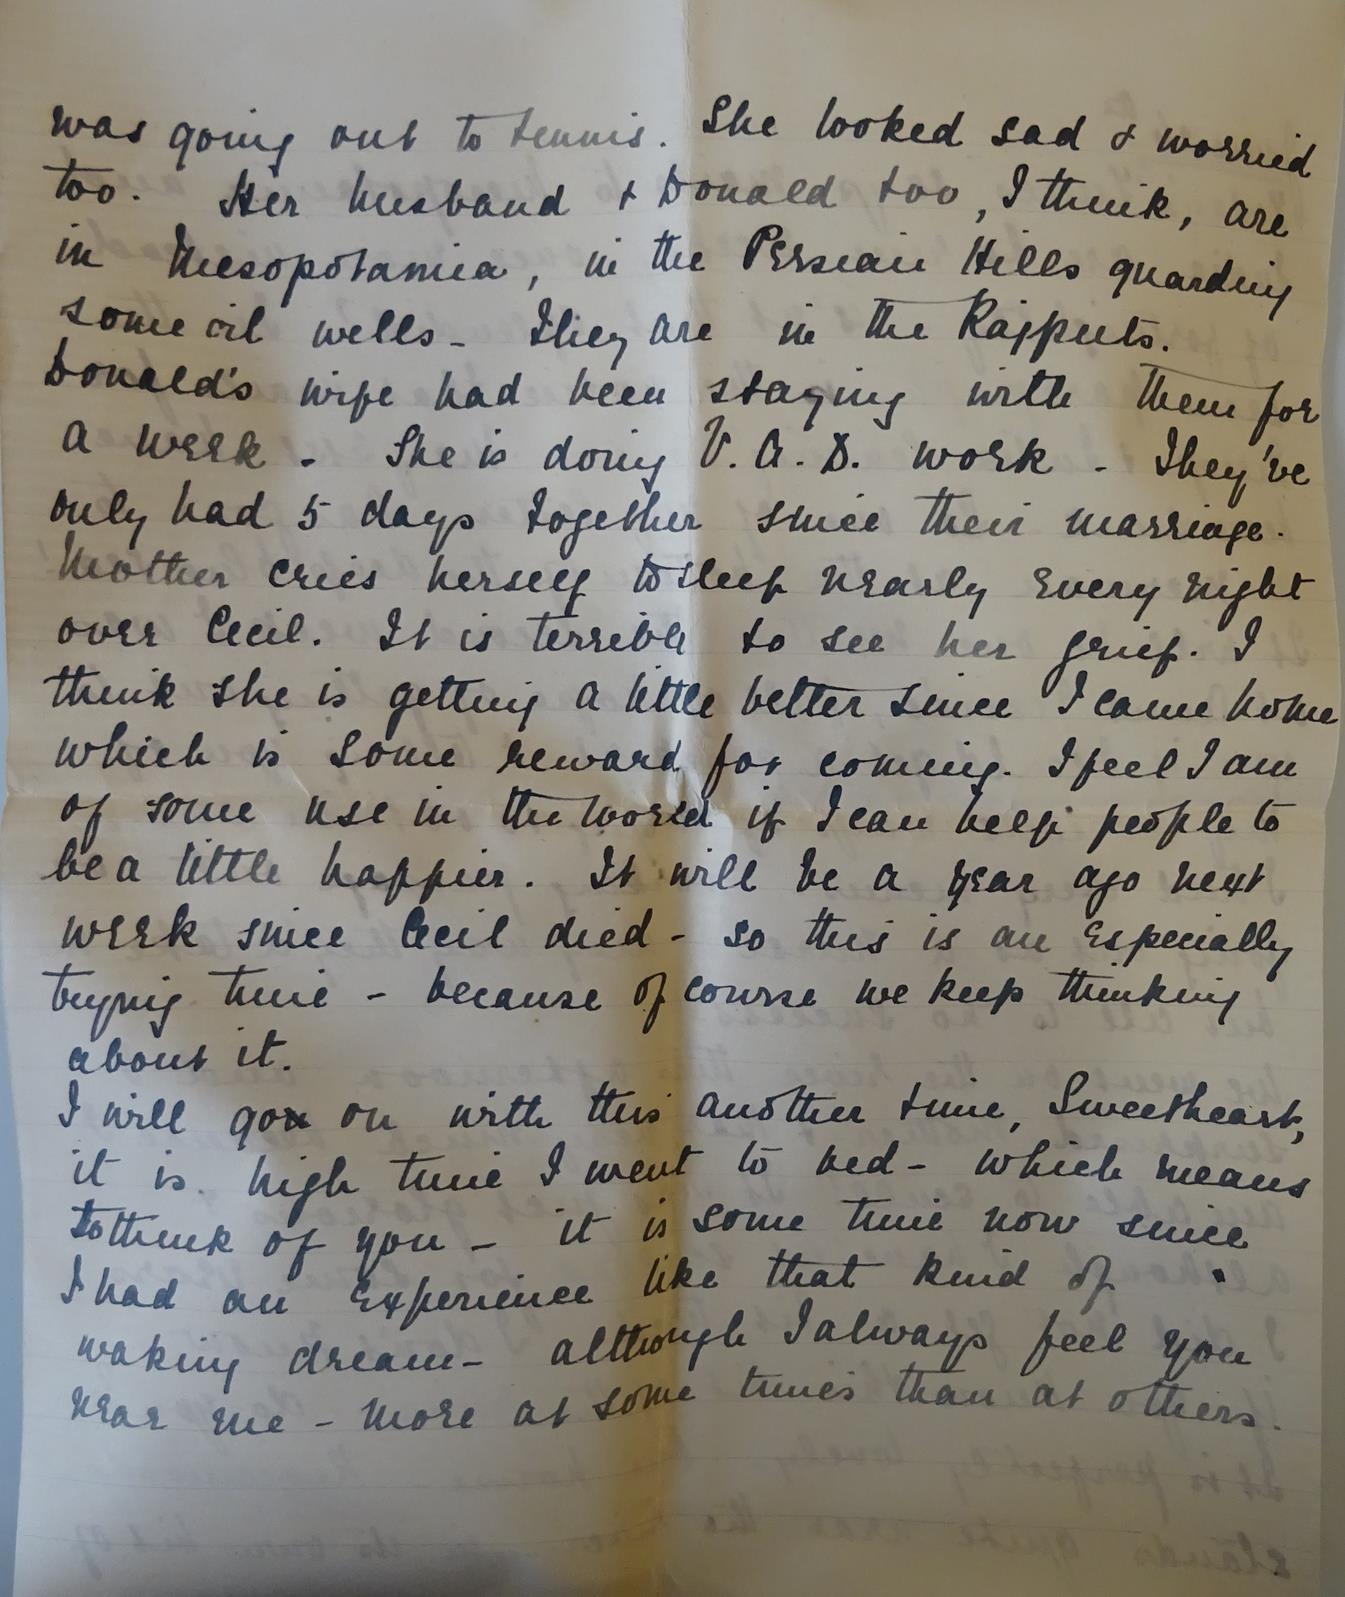 was going out to tennis. She looked sad & worried
too. Her husband & Donald too, I think, are
in Mesopotamia, in the Persian Hills guarding
some oil wells - They are in the Rajputs.
Donald's wife had been staying with them for
a week - She is doing V.A.D. work - They've
only had 5 days together since their marriage.
Mother cries herself to sleep nearly every night
over Cecil. It is terrible to see her grief. I
think she is getting a little better since I came home
which is some reward for coming. I feel I am
of some use in the world if I can help people to
be a little happier. It will be a year ago next
week since Cecil died - so this is an especially
trying time - because of course we keep thinking
about it.
I will go on with this another time, Sweetheart,
it is high time I went to bed - which means
to think of you - it is some time now since
I had an experience like that kind of
waking dream - although I always feel you
near me - more at some times than at others.